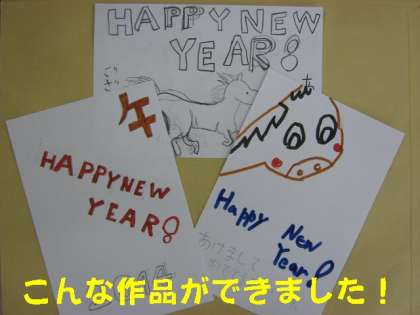 HAPPY NEW
YEAR!
午
HAPPY NEW
YEAR!
Happy New
Year!
あけまして
こんな作品ができました！